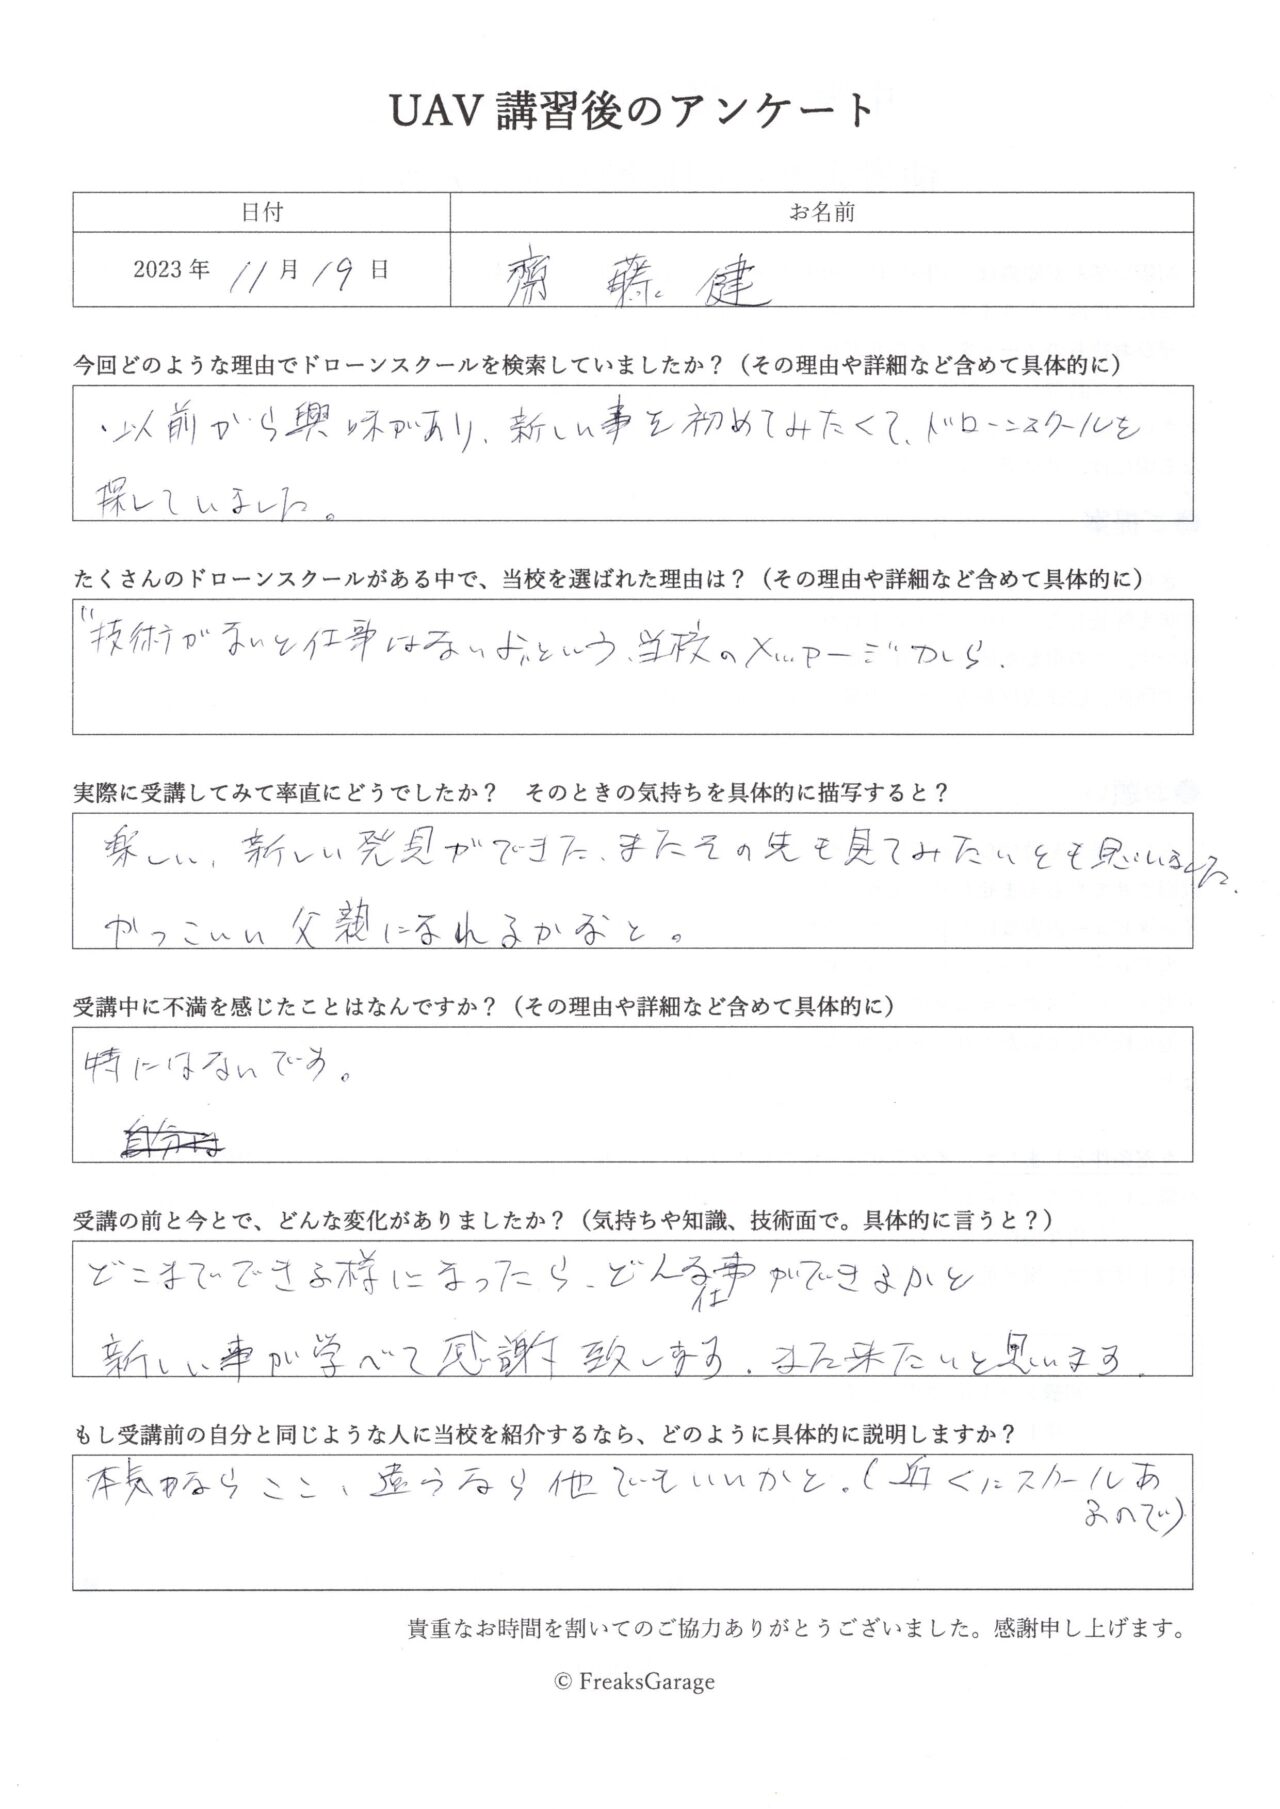 UAV 講習後のアンケート
日付
お名前
2023 年 11 月 19 日
齋藤 健
今回どのような理由でドローンスクールを検索していましたか？（その理由や詳細など含めて具体的に）
・以前から興味があり、新しい事を初めてみたくて、ドローンスクールを
探していました。
たくさんのドローンスクールがある中で、当校を選ばれた理由は？（その理由や詳細など含めて具体的に）
"技術がないと仕事はないよ"という、当校のメッセージから、
実際に受講してみて率直にどうでしたか？　そのときの気持ちを具体的に描写すると？
楽しい、新しい発見ができた、またその先も見てみたいとも思いました、
かっこいい父親になれるかなと。
受講中に不満を感じたことはなんですか？（その理由や詳細など含めて具体的に）
特にはないです。
受講の前と今とで、どんな変化がありましたか？（気持ちや知識、技術面で。具体的に言うと？）
どこまでできる様になったら、どんな仕事ができるかと
新しい事が学べて感謝致します、また来たいと思います、
もし受講前の自分と同じような人に当校を紹介するなら、どのように具体的に説明しますか？
本気ならここ、違うなら他でもいいかと。（近くにスクールあ
るので）
貴重なお時間を割いてのご協力ありがとうございました。感謝申し上げます。
© FreaksGarage